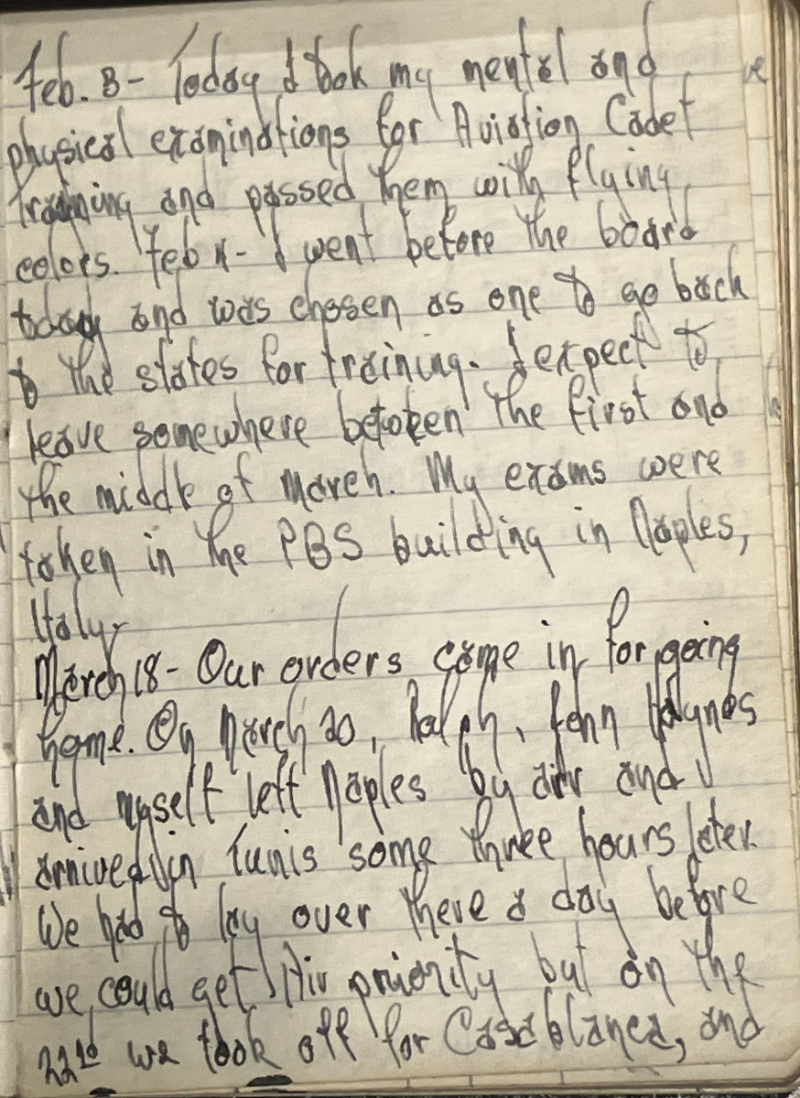 Feb. 8 - Today I took my mental and
physical examinations for Aviation Cadet
Training and passed them with flying
colors. Feb - I went before the board
today and was chosen as one to go back
to the states for training. I expect to
leave somewhere between the first and
the middle of March. My exams were
taken in the PBS building in Naples,
Italy.
March 18 - Our orders came in for going
home. On March 20, Ralph, Fenn Haynes
and myself left Naples by air and
arrived in Tunis some three hours later.
We had to lay over there a day before
we could get Air priority but on the
22nd we took off for Casablanca, and